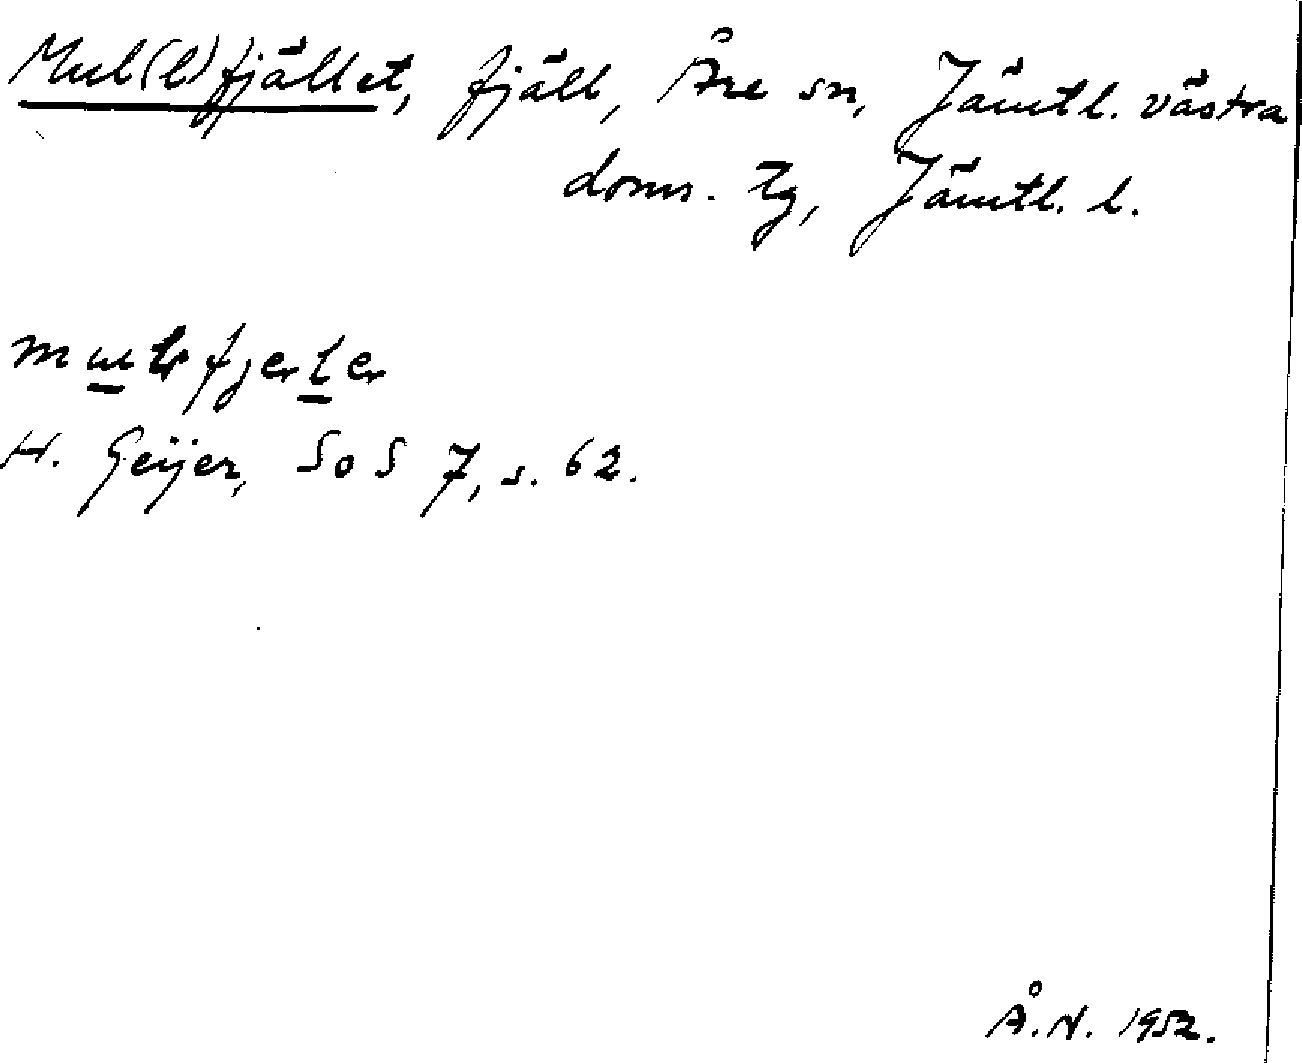 Mul(l)fjället, fjäll, Åre sn, Jämtl. västra
doms. tg, Jämtl. l.
H. Geijer, SoS 7, s. 62.
Å.N. 1952.